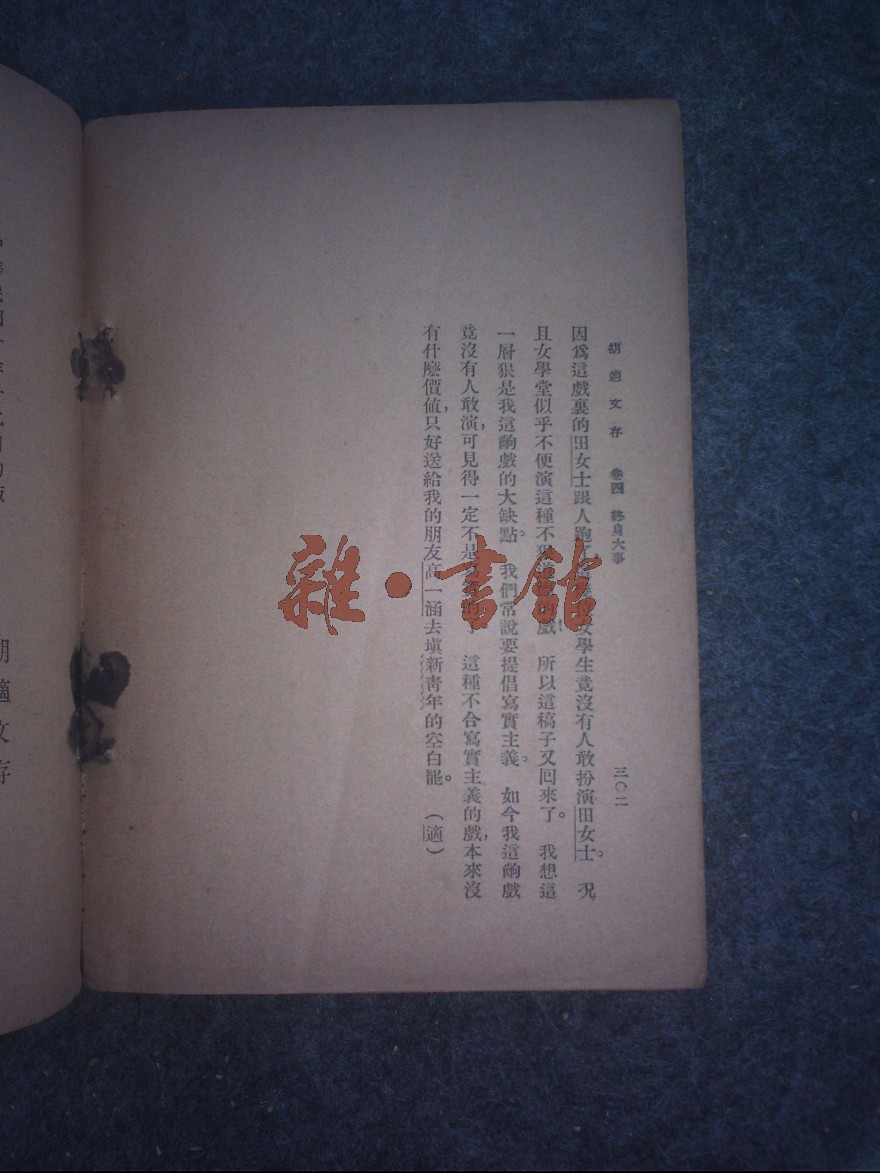 胡適文存 卷四 終身大事 三〇二
因爲這戲裏的田女士跟人跑了,女學生竟沒有人敢扮演田女士。 況
且女學堂似乎不便演這種不戲! 所以這稿子又回來了。 我想這
一層狠是我這齣戲的大缺點。 我們常說要提倡寫實主義。 如今我這齣戲
竟沒有人敢演,可見得一定不是了。 這種不合寫實主義的戲,本來沒
有什麼價值,只好送給我的朋友高一涵去填新靑年的空白罷。 (適)
雜·書館
胡適文存